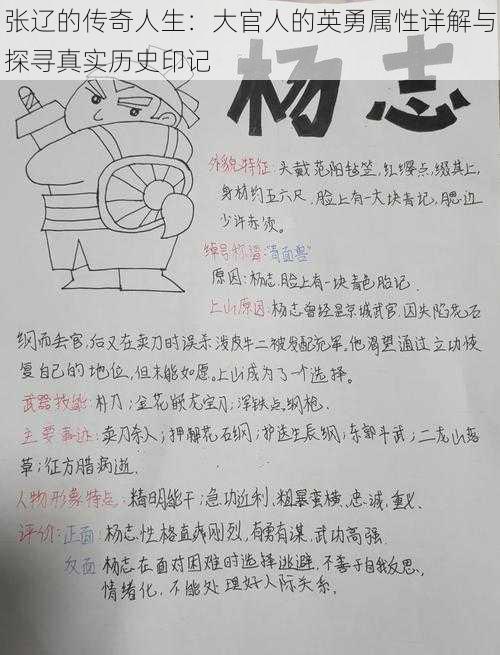 张辽的传奇人生：大官人的英勇属性详解与
探寻真实历史印记
杨志
外貌特征：头戴范阳毡笠，红缨点缀其上，
身材约五六尺，脸上有一大块青记，腮边
少许赤须。
绰号称谓："青面兽"
原因：杨志脸上有一块青色胎记。
上山原因：杨志曾经是京城武官，因失陷花石
纲而丢官，后又在卖刀时误杀泼皮牛二被发配充军。他渴望通过立功恢
复自己的地位，但未能如愿。上山成为了一个选择。
武器技能：朴刀；金花嵌龙宝刀；浑铁点钢枪。
主要事迹：卖刀杀人；押解花石纲；护送生辰纲；东郭斗武；二龙山落
草；征方腊病逝。
人物形象特点：精明能干；急功近利，粗暴蛮横，忠诚，重义。
评价：正面：杨志性格直爽刚烈，有勇有谋，武功高强。
反面 杨志在面对困难时选择逃避，不善于自我反思，
情绪化，不能处理好人际关系。